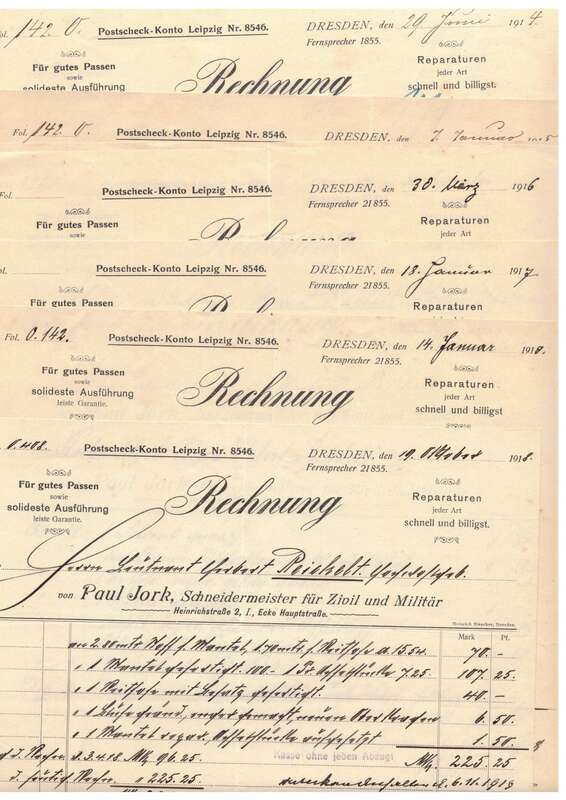 Fol. 142 O.
Postscheck-Konto Leipzig Nr. 8546.
DRESDEN, den 29 Juni 1914.
Fernsprecher 1855.
Für gutes Passen
sowie
solideste Ausführung
Rechnung
Reparaturen
jeder Art
schnell und billigst.
Fol. 142 O.
Postscheck-Konto Leipzig Nr. 8546.
DRESDEN, den 7. Januar
Postscheck-Konto Leipzig Nr. 8546.
DRESDEN, den 30. März 1916
Fernsprecher 21855.
Für gutes Passen
sowie
Rechnung
Reparaturen
jeder Art
Postscheck-Konto Leipzig Nr. 8546.
DRESDEN, den 18. Januar 1917
Fernsprecher 21855.
Für gutes Passen
Reparaturen
Fol. O. 142.
Postscheck-Konto Leipzig Nr. 8546.
DRESDEN, den 14. Januar 1918.
Fernsprecher 21855.
Für gutes Passen
sowie
solideste Ausführung
leiste Garantie.
Rechnung
Reparaturen
jeder Art
schnell und billigst
O. 408.
Postscheck-Konto Leipzig Nr. 8546.
DRESDEN, den 19. Oktober 1918.
Fernsprecher 21855.
Für gutes Passen
sowie
solideste Ausführung
leiste Garantie.
Rechnung
Reparaturen
jeder Art
schnell und billigst.
Herrn Leutnant Herbert Reichelt.
von Paul Jork, Schneidermeister für Zivil und Militär
Heinrichstraße 2, I., Ecke Hauptstraße.
Mark Pf.
70. –
1 Mantel gefertigt. 100.- 7.25. 107 25.
1 Reithose mit Besatz gefertigt. 40 –
6. 50.
1 Mantel 1. 50.
Kasse ohne jeden Abzug! Mk. 225. 25
3.4.18 Mk. 96.25.
225.25
d. 6.11.1918